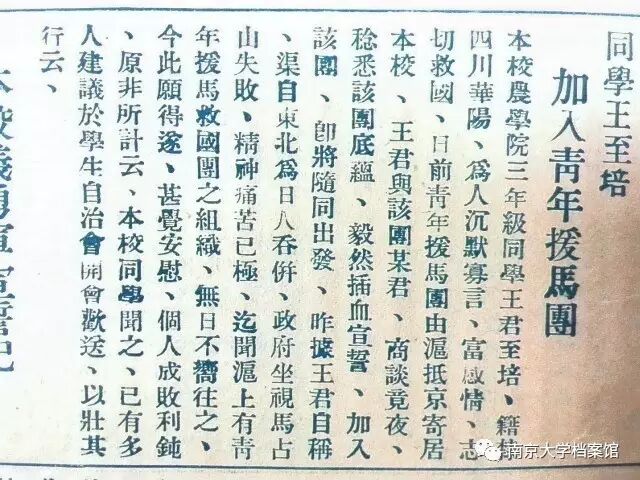 同學王至培
加入靑年援馬團
本校農學院三年級同學王君至培、籍
四川華陽、爲人沉默寡言、富感情、志
切救國、日前靑年援馬團由滬抵京寄居
本校、王君與該團某君、商談竟夜、
稔悉該團底蘊、毅然插血宣誓、加入
該團、卽將隨同出發、昨據王君自稱
、渠自東北爲日人吞倂、政府坐視馬占
山失敗、精神痛苦已極、迄聞滬上有靑
年援馬救國團之組織、無日不嚮往之、
今此願得遂、甚覺安慰、個人成敗利鈍
、原非所計云、本校同學聞之、已有多
人建議於學生自治會開會歡送、以壯其
行云、
本校義勇軍宣誓記
南京大学档案馆